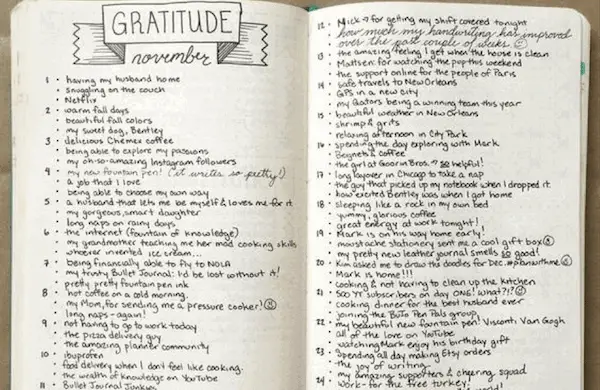 GRATITUDE
november
1 • having my husband home
• snuggling on the couch
• Netflix
2 • warm fall days
• beautiful fall colors
• my sweet dog, Bentley
3 • delicious Chemex coffee
• being able to explore my passions
• my oh-so-amazing Instagram followers
4 • my new fountain pen! (it writes so pretty!)
• a job that I love
• being able to choose my own way
5 • a husband that lets me be myself & loves me for it
• my gorgeous, smart daughter
• long naps on rainy days
6 • the internet (fountain of knowledge)
• my grandmother teaching me her mad cooking skills
• whoever invented ice cream...
7 • being financially able to fly to NOLA
• my trusty Bullet Journal: I'd be lost without it!
• pretty pretty fountain pen ink
8 • hot coffee on a cold morning.
• my Mom, for sending me a pressure cooker!
• long naps - again!
9 • not having to go to work today
• the pizza delivery guy
• the amazing planner community
10 • ibuprofen
• food delivery when I don't feel like cooking.
• the wealth of knowledge on YouTube
11 • Bullet Journal Junkies
12 • Mick → for getting my shift covered tonight
• how much my handwriting has improved
over the past couple of weeks.
13 • the amazing feeling I get when the house is clean
• Mattsen: for watching the pup this weekend
• the support online for the people of Paris
14 • safe travels to New Orleans
• GPS in a new city
• my Gators being a winning team this year
15 • beautiful weather in New Orleans
• shrimp & grits
• relaxing afternoon in City Park
16 • spending the day exploring with Mark
• Beignets & coffee
• the girl at Goorin Bros. → so helpful!
17 • long layover in Chicago to take a nap
• the guy that picked up my notebook when I dropped it
• how excited Bentley was when I got home
18 • sleeping like a rock in my own bed
• yummy, glorious coffee
• great energy at work tonight!
19 • Mark is on his way home early!
• moustache stationery sent me a cool gift box
• my pretty new leather journal smells so good!
20 • Kim asked me to draw the doodles for Dec. #planwithme
• Mark is home!!!
• cooking & not having to clean up the kitchen
21 • 500 YT subscribers on day ONE! what?!?
• cooking dinner for the best husband ever
• joining the BuJo Pen Pals group
22 • my beautiful new fountain pen! Visconti Van Gogh
• all of the love on YouTube
• watching Mark enjoy his birthday gift
23 • spending all day making Etsy orders
• the joy of writing.
• my amazing supporters & cheering squad
24 • work - for the free turkey